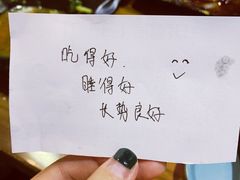 吃得好.
睡得好
长势良好